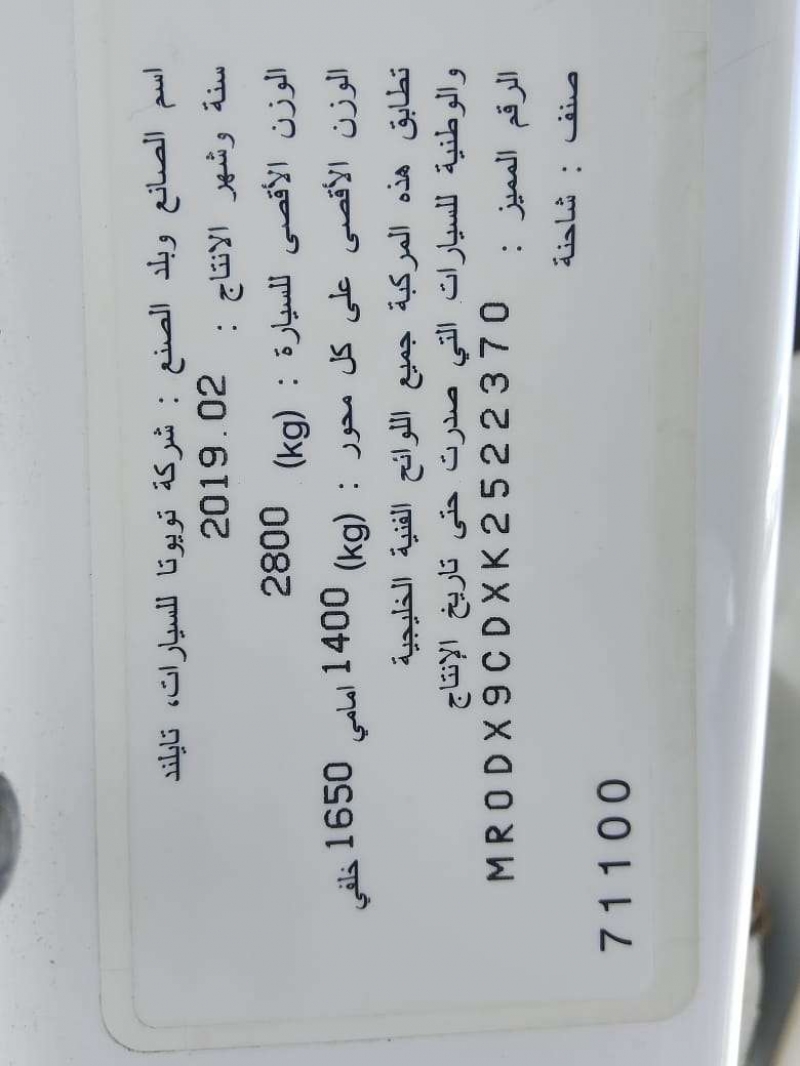 اسم الصانع وبلد الصنع : شركة تويوتا للسيارات، تايلند
سنة وشهر الانتاج : 2019.02
الوزن الأقصى للسيارة : (kg) 2800
الوزن الأقصى على كل محور : (kg) 1400 امامي 1650 خلفي
تطابق هذه المركبة جميع اللوائح الفنية الخليجية
والوطنية للسيارات التي صدرت حتى تاريخ الإنتاج
الرقم المميز : MR0DX9CDXK2522370
صنف : شاحنة
71100